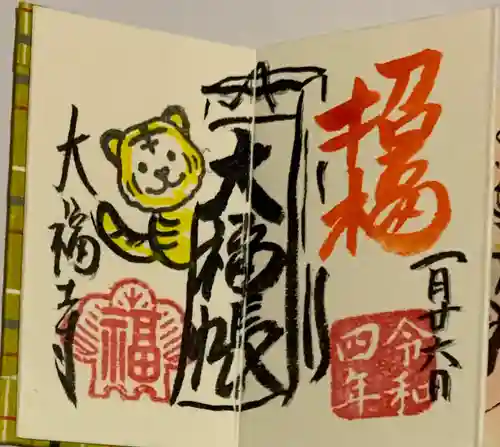 招福
一月廿六日
令和
四年
大福帳
大福寺
福